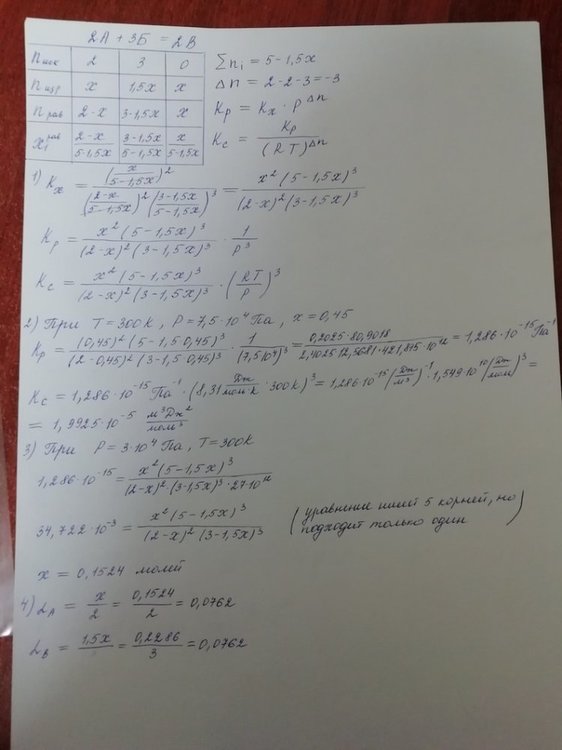 2А + 3Б = 2В
n исх | 2 | 3 | 0
n изр | x | 1,5x | x
n рав | 2-x | 3-1,5x | x
x_i^рав | (2-x)/(5-1,5x) | (3-1,5x)/(5-1,5x) | x/(5-1,5x)
Σn_i = 5-1,5x
Δn = 2-2-3=-3
K_p = K_x · P^Δn
K_c = K_p/(RT)^Δn
1) K_x = (x/(5-1,5x))^2/((2-x)/(5-1,5x))^2((3-1,5x)/(5-1,5x))^3 = x^2(5-1,5x)^3/(2-x)^2(3-1,5x)^3
K_p = x^2(5-1,5x)^3/(2-x)^2(3-1,5x)^3 · 1/P^3
K_c = x^2(5-1,5x)^3/(2-x)^2(3-1,5x)^3 · (RT/P)^3
2) При T=300К, P=7,5·10^4 Па, x=0,45
K_p = (0,45)^2(5-1,5·0,45)^3/(2-0,45)^2(3-1,5·0,45)^3 · 1/(7,5·10^4)^3 = 0,2025·80,9018/2,4025·12,5681·421,875·10^12 = 1,286·10^-15 Па^-1
K_c = 1,286·10^-15 Па^-1·(8,31 Дж/моль·К ·300К)^3 = 1,286·10^-15(Дж/м^3)^-1·1,549·10^10(Дж/моль)^3 =
= 1,9925·10^-5 м^3Дж^2/моль^3
3) При P=3·10^4 Па, T=300К
1,286·10^-15 = x^2(5-1,5x)^3/(2-x)^2(3-1,5x)^3·27·10^12
34,722·10^-3 = x^2(5-1,5x)^3/(2-x)^2(3-1,5x)^3
(уравнение имеет 5 корней, но
подходит только один)
x = 0,1524 молей
4) α_A = x/2 = 0,1524/2 = 0,0762
α_B = 1,5x/ = 0,2286/3 = 0,0762